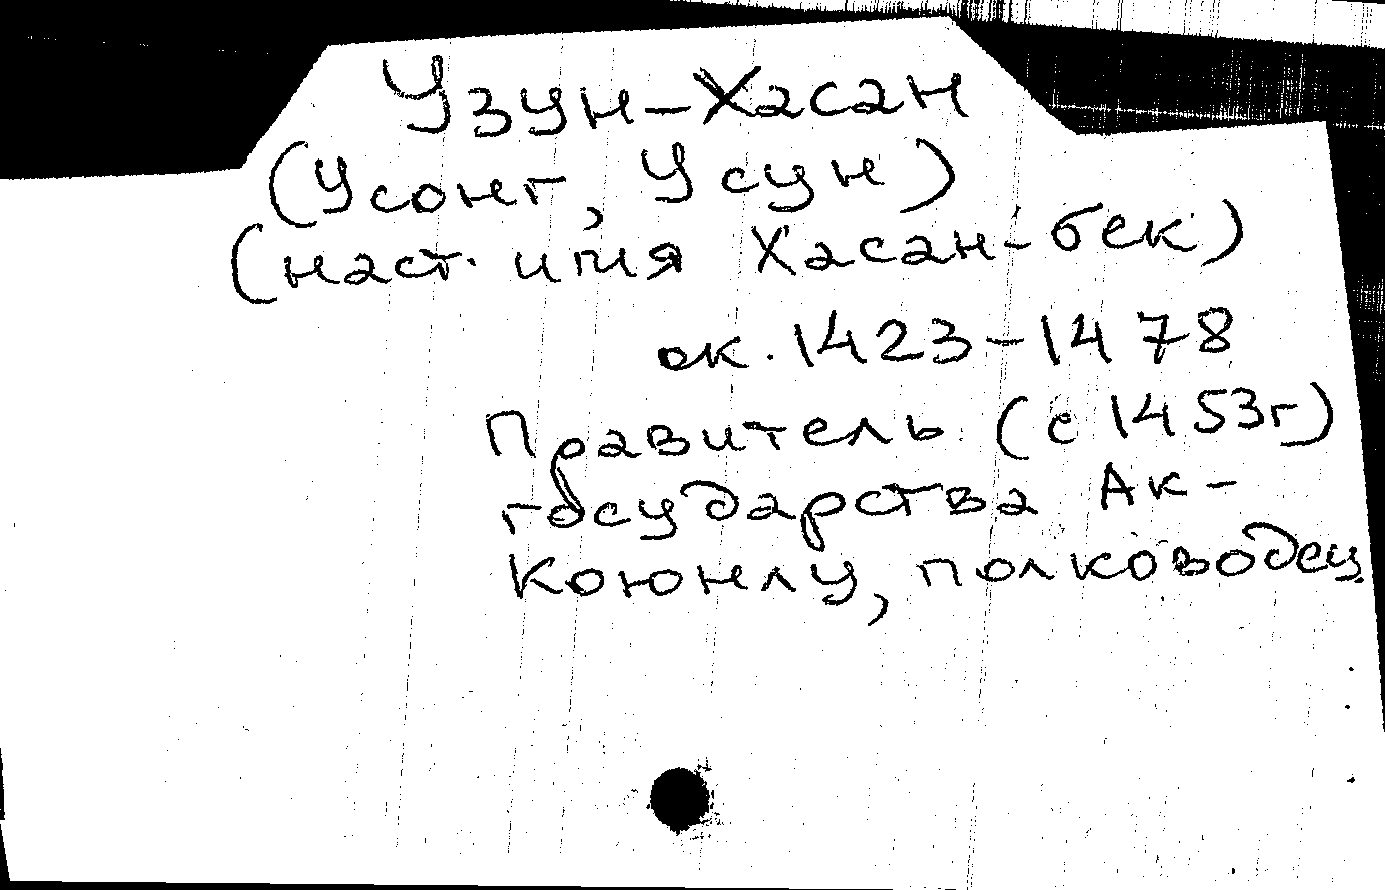 Узун-Хасан
(Усонг, Усун)
(наст. имя Хасан-бек)
ок. 1423-1478
Правитель (с 1453г)
государства Ак-
Коюнлу, полководец